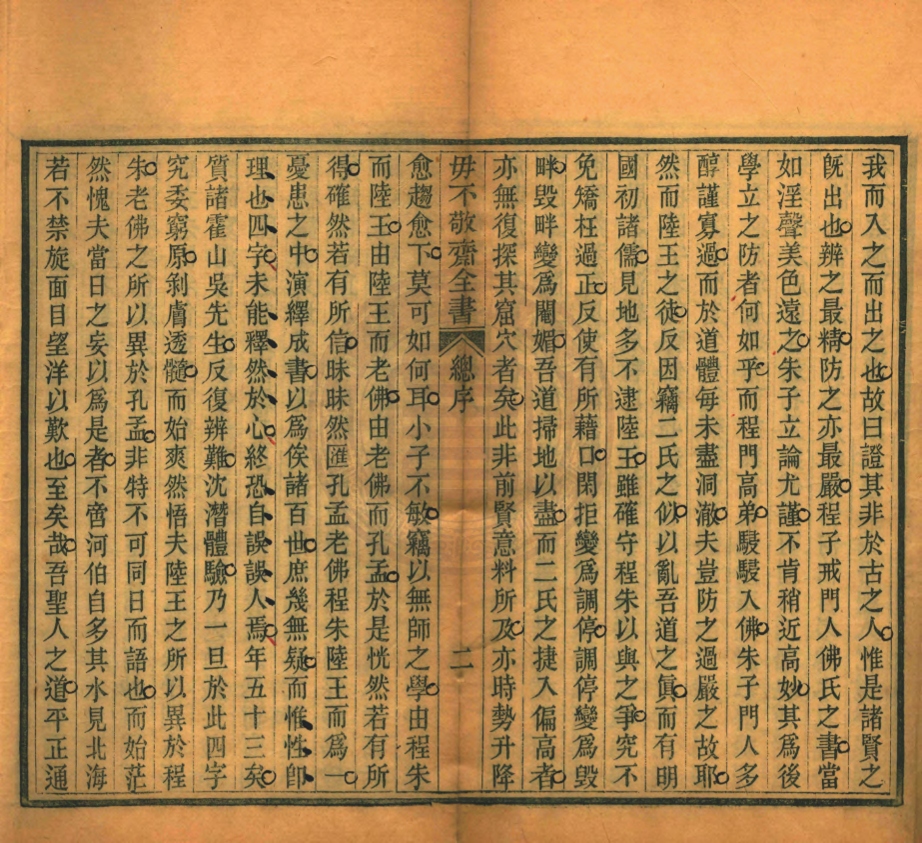 我而入之而出之也故曰證其非於古之人惟是諸賢之
旣出也辨之最精防之亦最嚴程子戒門人佛氏之書當
如淫聲美色遠之朱子立論尤謹不肯稍近高妙其為後
學立之防者何如乎而程門高弟駸駸入佛朱子門人多
醇謹寡過而於道體每未盡洞澈夫豈防之過嚴之故耶
然而陸王之徒反因竊二氏之似以亂吾道之眞而有明
國初諸儒見地多不逮陸王雖確守程朱以與之爭究不
免矯枉過正反使有所藉口閑拒變爲調停調停變爲毀
畔毀畔變爲闍媚吾道掃地以盡而二氏之捷入偏高者
亦無復探其窟穴者矣此非前賢意料所及亦時勢升降
毋不敬齋全書 總序 二
愈趨愈下莫可如何耳小子不敏竊以無師之學由程朱
而陸王由陸王而老佛由老佛而孔孟於是恍然若有所
得確然若有所信昧昧然匯孔孟老佛程朱陸王而爲一
憂患之中演繹成書以爲俟諸百世庶幾無疑而惟性卽
理也四字未能釋然於心終恐自誤誤人焉年五十三矣
質諸霍山吳先生反復辨難沈潛體驗乃一旦於此四字
究委窮原剝膚透髓而始爽然悟夫陸王之所以異於程
朱老佛之所以異於孔孟非特不可同日而語也而始茫
然愧夫當日之妄以爲是者不啻河伯自多其水見北海
若不禁旋面目望洋以歎也至矣哉吾聖人之道平正通